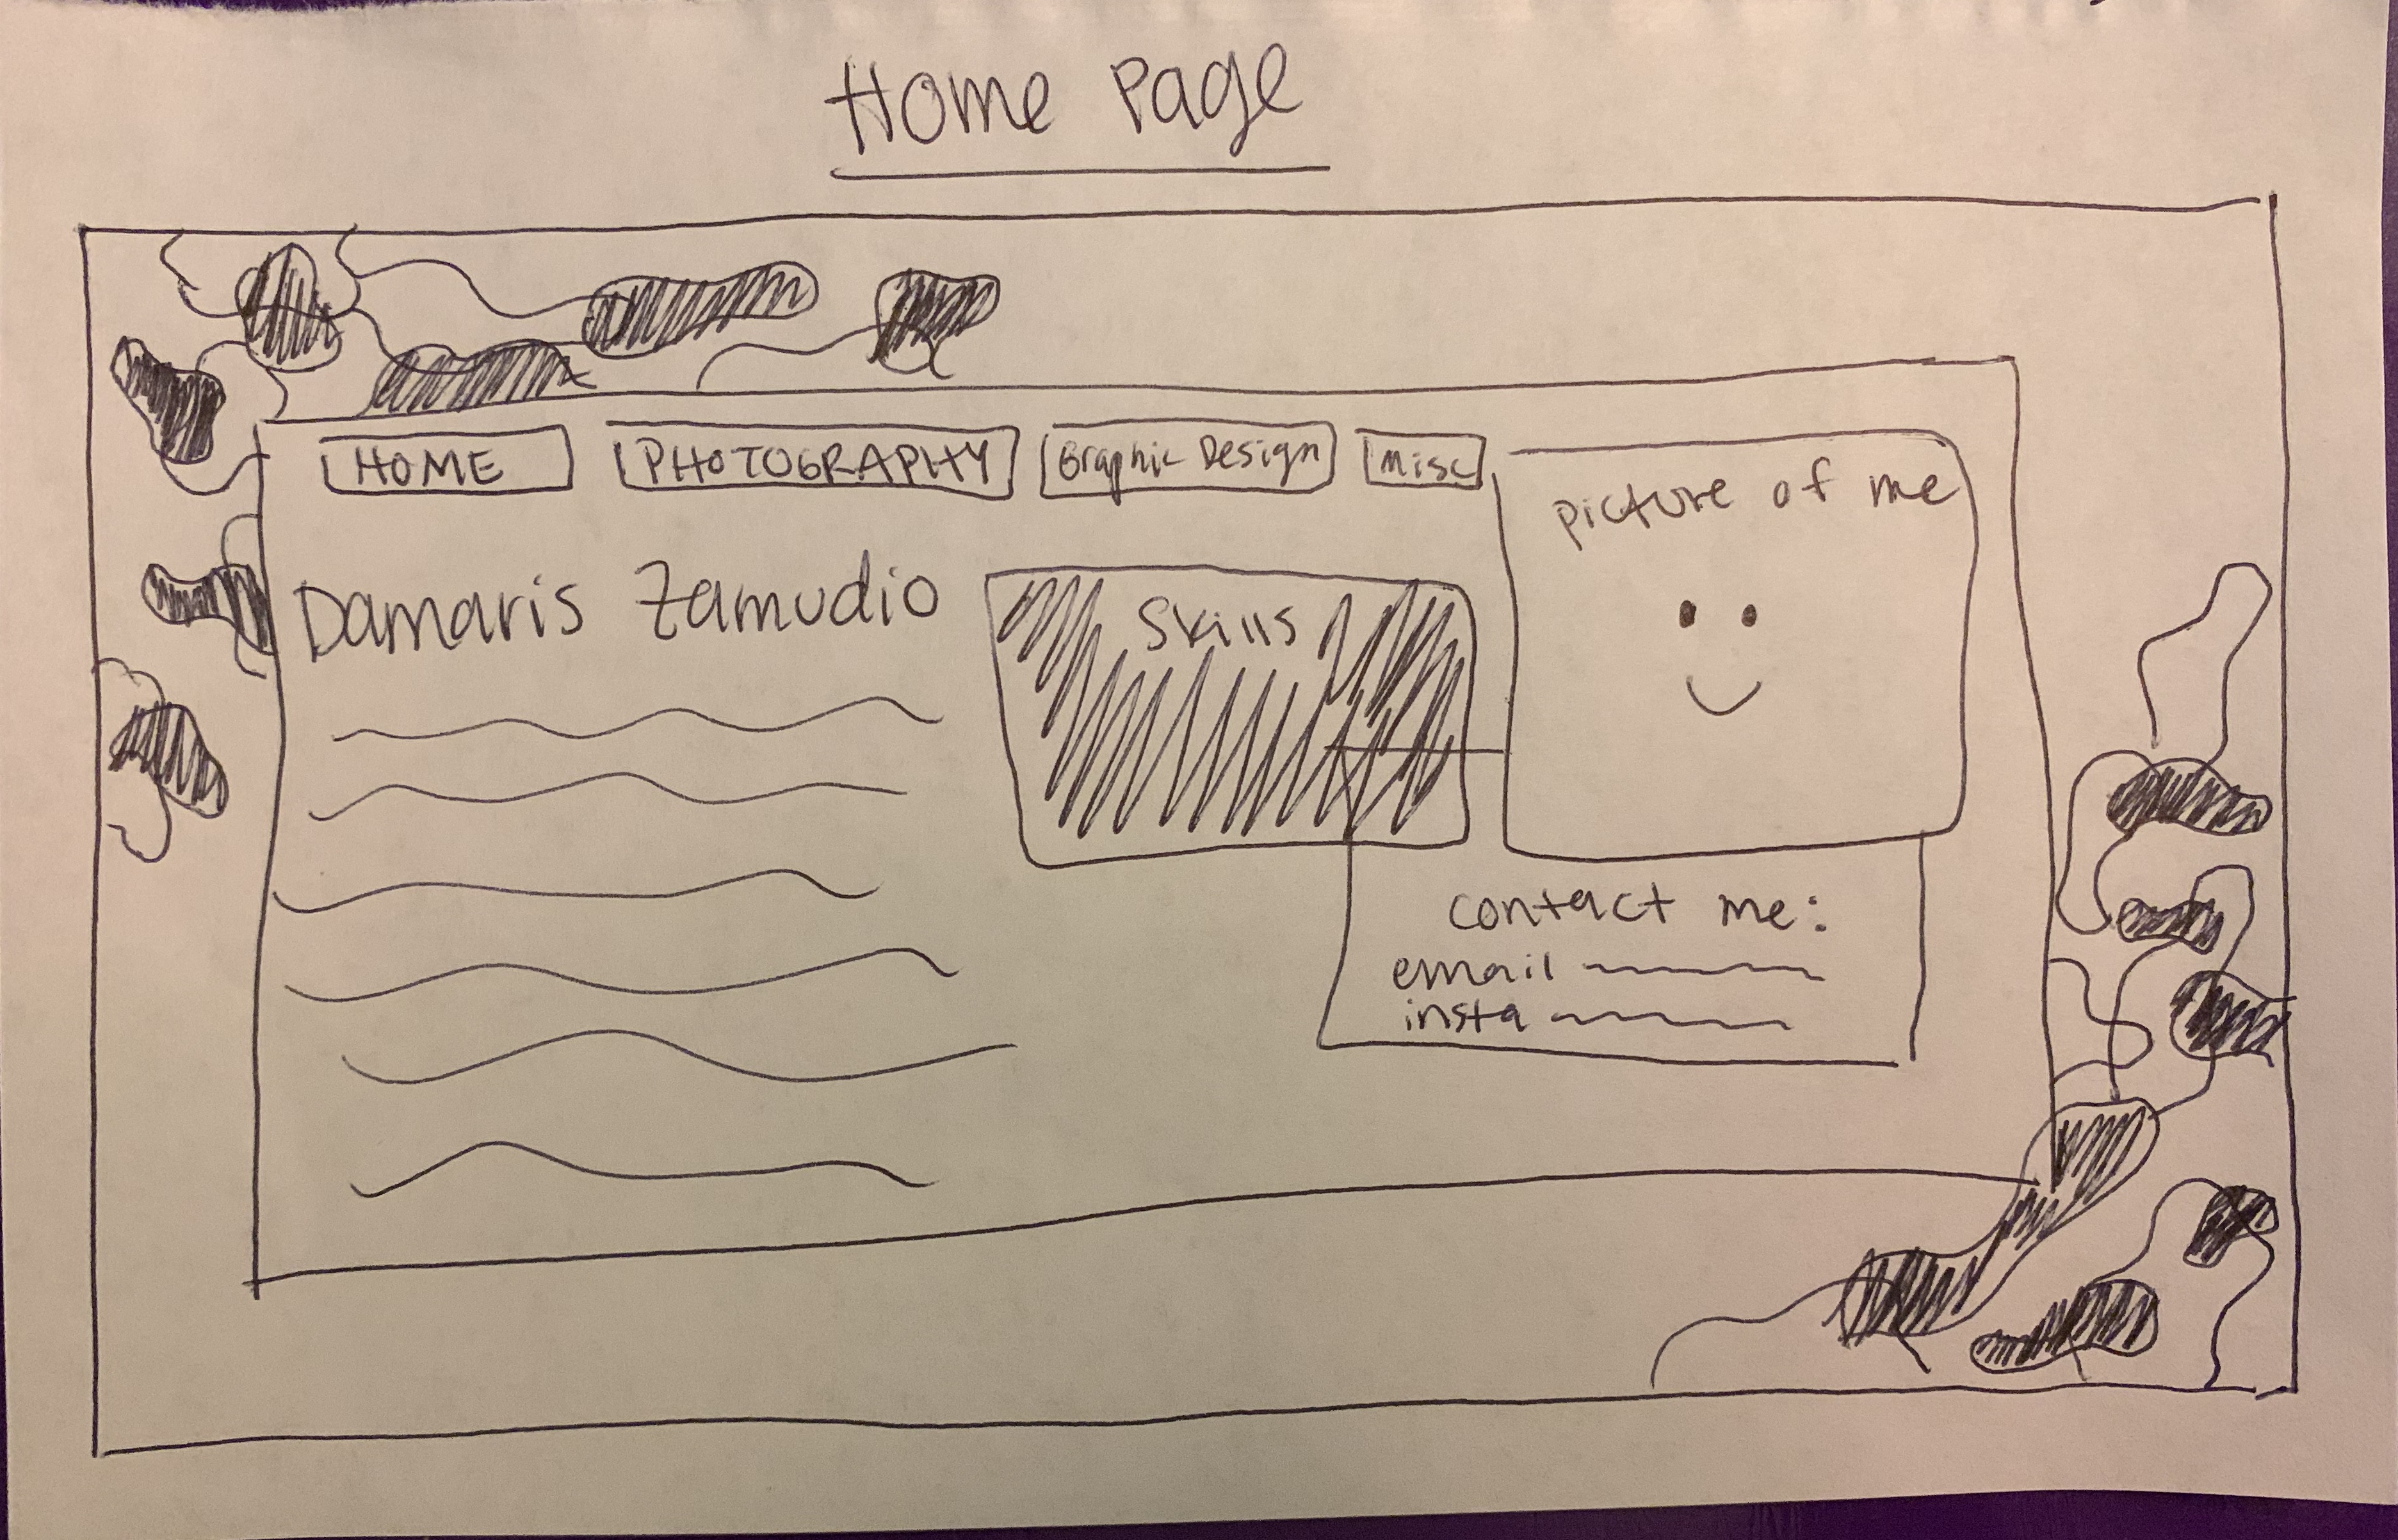 Home Page
HOME PHOTOGRAPHY Graphic Design Misc
picture of me
Damaris Zamudio
Skills
contact me:
email
insta